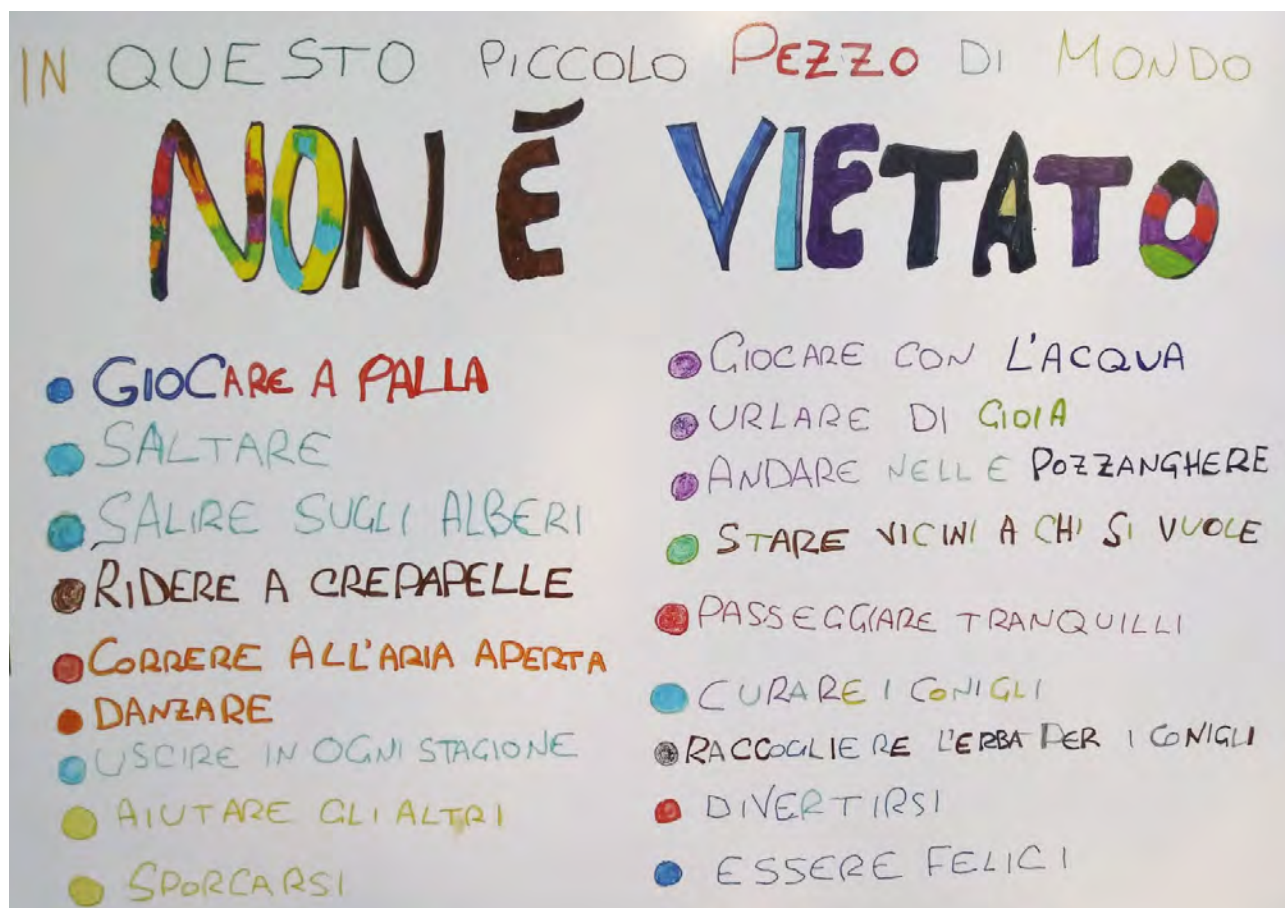 IN QUESTO PICCOLO PEZZO DI MONDO
NON É VIETATO
GIOCARE A PALLA
SALTARE
SALIRE SUGLI ALBERI
RIDERE A CREPAPELLE
CORRERE ALL'ARIA APERTA
DANZARE
USCIRE IN OGNI STAGIONE
AIUTARE GLI ALTRI
SPORCARSI
GIOCARE CON L'ACQUA
URLARE DI GIOIA
ANDARE NELLE POZZANGHERE
STARE VICINI A CHI SI VUOLE
PASSEGGIARE TRANQUILLI
CURARE I CONIGLI
RACCOGLIERE L'ERBA PER I CONIGLI
DIVERTIRSI
ESSERE FELICI